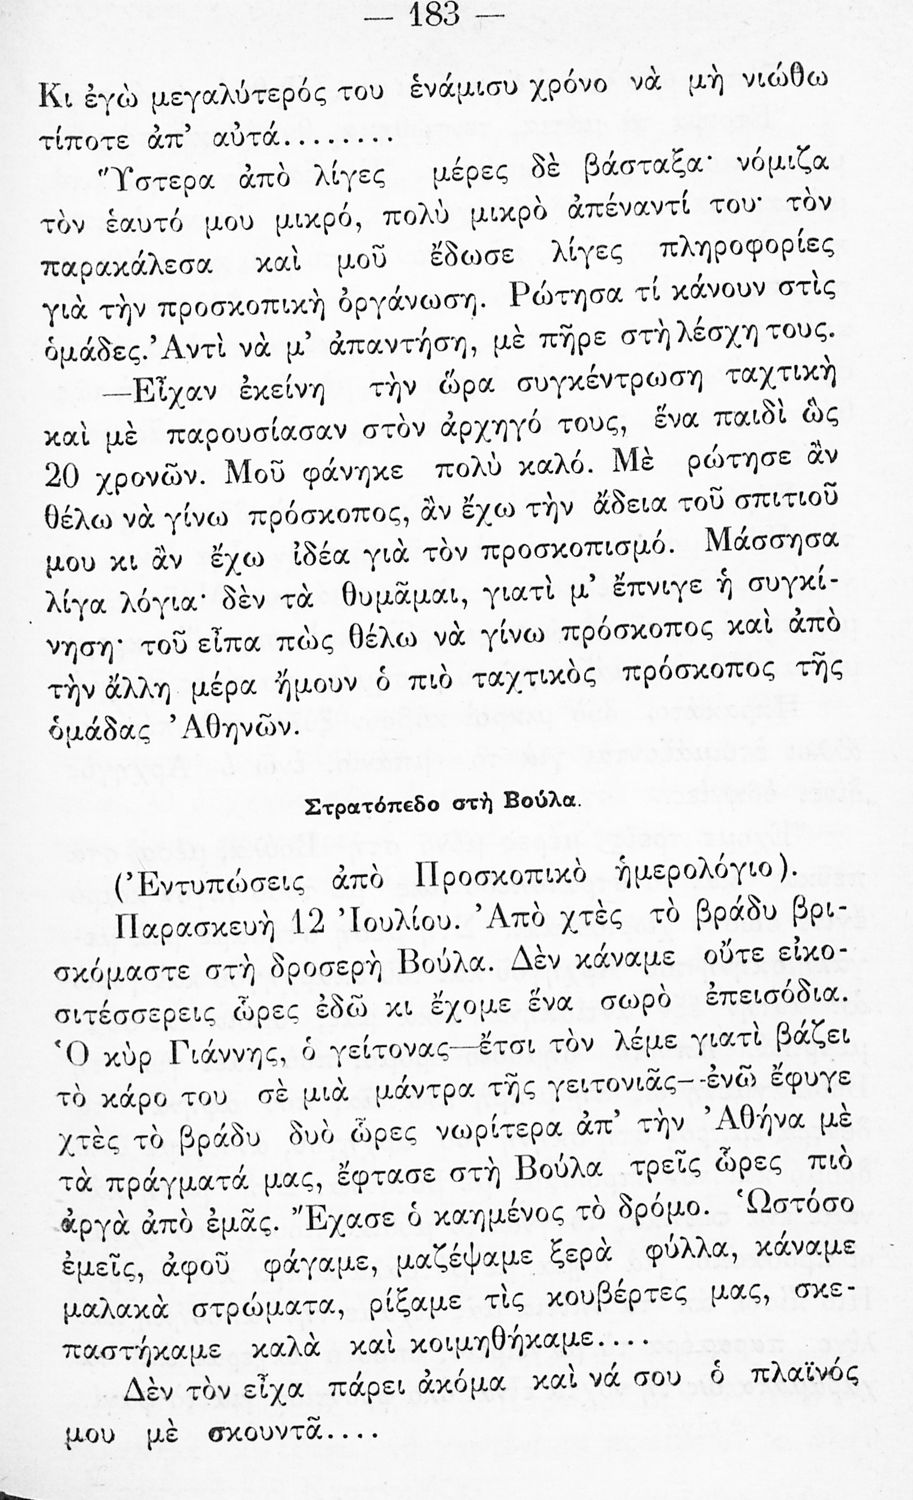 — 183 —
Κι ἐγὼ μεγαλύτερός του ἑνάμισυ χρόνο νὰ μὴ νιώθω
τίποτε ἀπ’ αὐτά.........
Ὕστερα ἀπὸ λίγες μέρες δὲ βάσταξα· νόμιζα
τὸν ἑαυτό μου μικρό, πολὺ μικρὸ ἀπέναντί του· τὸν
παρακάλεσα καὶ μοῦ ἔδωσε λίγες πληροφορίες
γιὰ τὴν προσκοπικὴ ὀργάνωση. Ρώτησα τί κάνουν στὶς
ὁμάδες. Ἀντὶ νὰ μ’ ἀπαντήση, μὲ πῆρε στὴ λέσχη τους.
—Εἶχαν ἐκείνη τὴν ὥρα συγκέντρωση ταχτικὴ
καὶ μὲ παρουσίασαν στὸν ἀρχηγό τους, ἕνα παιδὶ ὣς
20 χρονῶν. Μοῦ φάνηκε πολὺ καλό. Μὲ ρώτησε ἂν
θέλω νὰ γίνω πρόσκοπος, ἂν ἔχω τὴν ἄδεια τοῦ σπιτιοῦ
μου κι ἂν ἔχω ἰδέα γιὰ τὸν προσκοπισμό. Μάσσησα
λίγα λόγια· δὲν τὰ θυμᾶμαι, γιατὶ μ’ ἔπνιγε ἡ συγκί-
νηση· τοῦ εἶπα πὼς θέλω νὰ γίνω πρόσκοπος καὶ ἀπὸ
τὴν ἄλλη μέρα ἤμουν ὁ πιὸ ταχτικὸς πρόσκοπος τῆς
ὁμάδας Ἀθηνῶν.
Στρατόπεδο στὴ Βούλα.
(Ἐντυπώσεις ἀπὸ Προσκοπικὸ ἡμερολόγιο).
Παρασκευὴ 12 Ἰουλίου. Ἀπὸ χτὲς τὸ βράδυ βρι-
σκόμαστε στὴ δροσερὴ Βούλα. Δὲν κάναμε οὔτε εἰκο-
σιτέσσερεις ὧρες ἐδῶ κι ἔχομε ἕνα σωρὸ ἐπεισόδια.
Ὁ κὺρ Γιάννης, ὁ γείτονας—ἔτσι τὸν λέμε γιατὶ βάζει
τὸ κάρο του σὲ μιὰ μάντρα τῆς γειτονιᾶς—ἐνῶ ἔφυγε
χτὲς τὸ βράδυ δυὸ ὧρες νωρίτερα ἀπ’ τὴν Ἀθήνα μὲ
τὰ πράγματά μας, ἔφτασε στὴ Βούλα τρεῖς ὧρες πιὸ
ἀργὰ ἀπὸ ἐμᾶς. Ἔχασε ὁ καημένος τὸ δρόμο. Ὡστόσο
ἐμεῖς, ἀφοῦ φάγαμε, μαζέψαμε ξερὰ φύλλα, κάναμε
μαλακὰ στρώματα, ρίξαμε τὶς κουβέρτες μας, σκε-
παστήκαμε καλὰ καὶ κοιμηθήκαμε....
Δὲν τὸν εἶχα πάρει ἀκόμα καὶ νά σου ὁ πλαϊνός
μου μὲ σκουντᾶ....